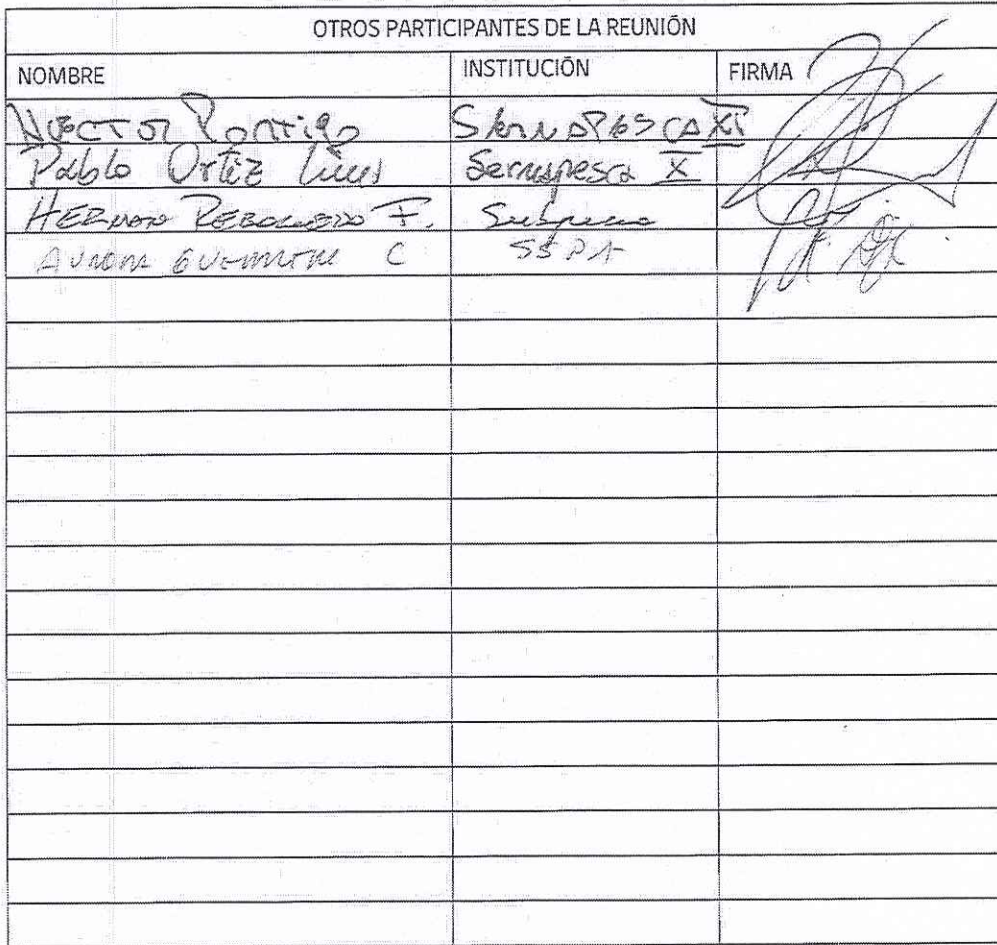 OTROS PARTICIPANTES DE LA REUNIÓN
NOMBRE INSTITUCIÓN FIRMA
Héctor Pontigo SERNAPESCA XI
Pablo Ortiz Sernapesca X
HERNAN REBOLLEDO F. Subpesca
AURORA GUERRERO C SSPA